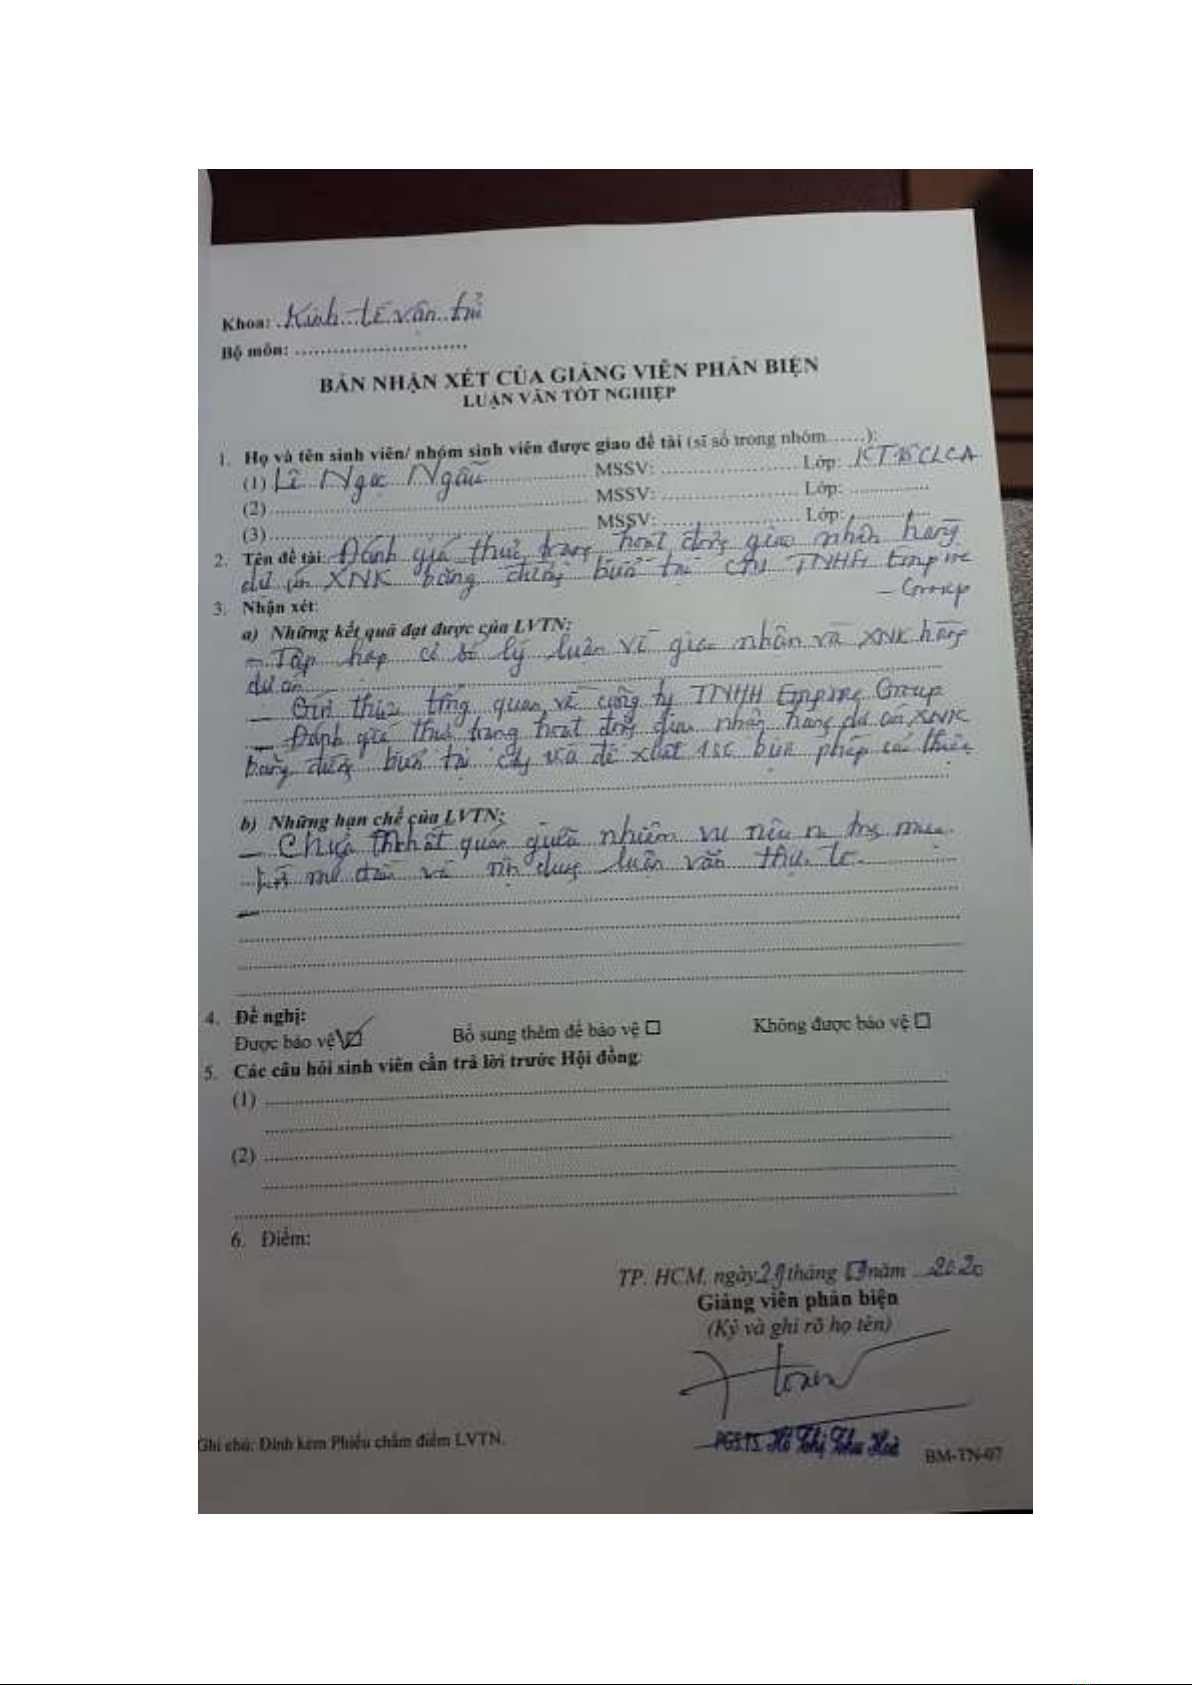 Khoa: Kinh tế vận tải
Bộ môn: ............................
BẢN NHẬN XÉT CỦA GIẢNG VIÊN PHẢN BIỆN
LUẬN VĂN TỐT NGHIỆP
1. Họ và tên sinh viên/ nhóm sinh viên được giao đề tài (sĩ số trong nhóm......):
(1) Lê Ngọc Ngẫu MSSV: ...................... Lớp: KT15CLCA
(2) .................................................. MSSV: ...................... Lớp: .............
(3) .................................................. MSSV: ...................... Lớp: .............
2. Tên đề tài: Đánh giá thực trạng hoạt động giao nhận hàng
dự án XNK bằng đường biển tại cty TNHH Empire
– Group
3. Nhận xét:
a) Những kết quả đạt được của LVTN:
– Tập hợp cơ sở lý luận về giao nhận và XNK hàng
dự án
– Giới thiệu tổng quan về công ty TNHH Empire Group
– Đánh giá thực trạng hoạt động giao nhận hàng dự án XNK
bằng đường biển tại cty và đề xuất các biện pháp cải thiện
b) Những hạn chế của LVTN:
– Chưa nhất quán giữa nhiệm vụ nêu ra trg mục
mở đầu về nội dung luận văn thực tế.
4. Đề nghị:
Được bảo vệ ☑ Bổ sung thêm để bảo vệ ☐ Không được bảo vệ ☐
5. Các câu hỏi sinh viên cần trả lời trước Hội đồng:
(1) ..................................................
(2) ..................................................
6. Điểm:
TP. HCM, ngày 29 tháng năm 2020
Giảng viên phản biện
(Ký và ghi rõ họ tên)
PGS.TS. Hồ Thị Thu Hoà
Ghi chú: Đính kèm Phiếu chấm điểm LVTN.
BM-TN-07